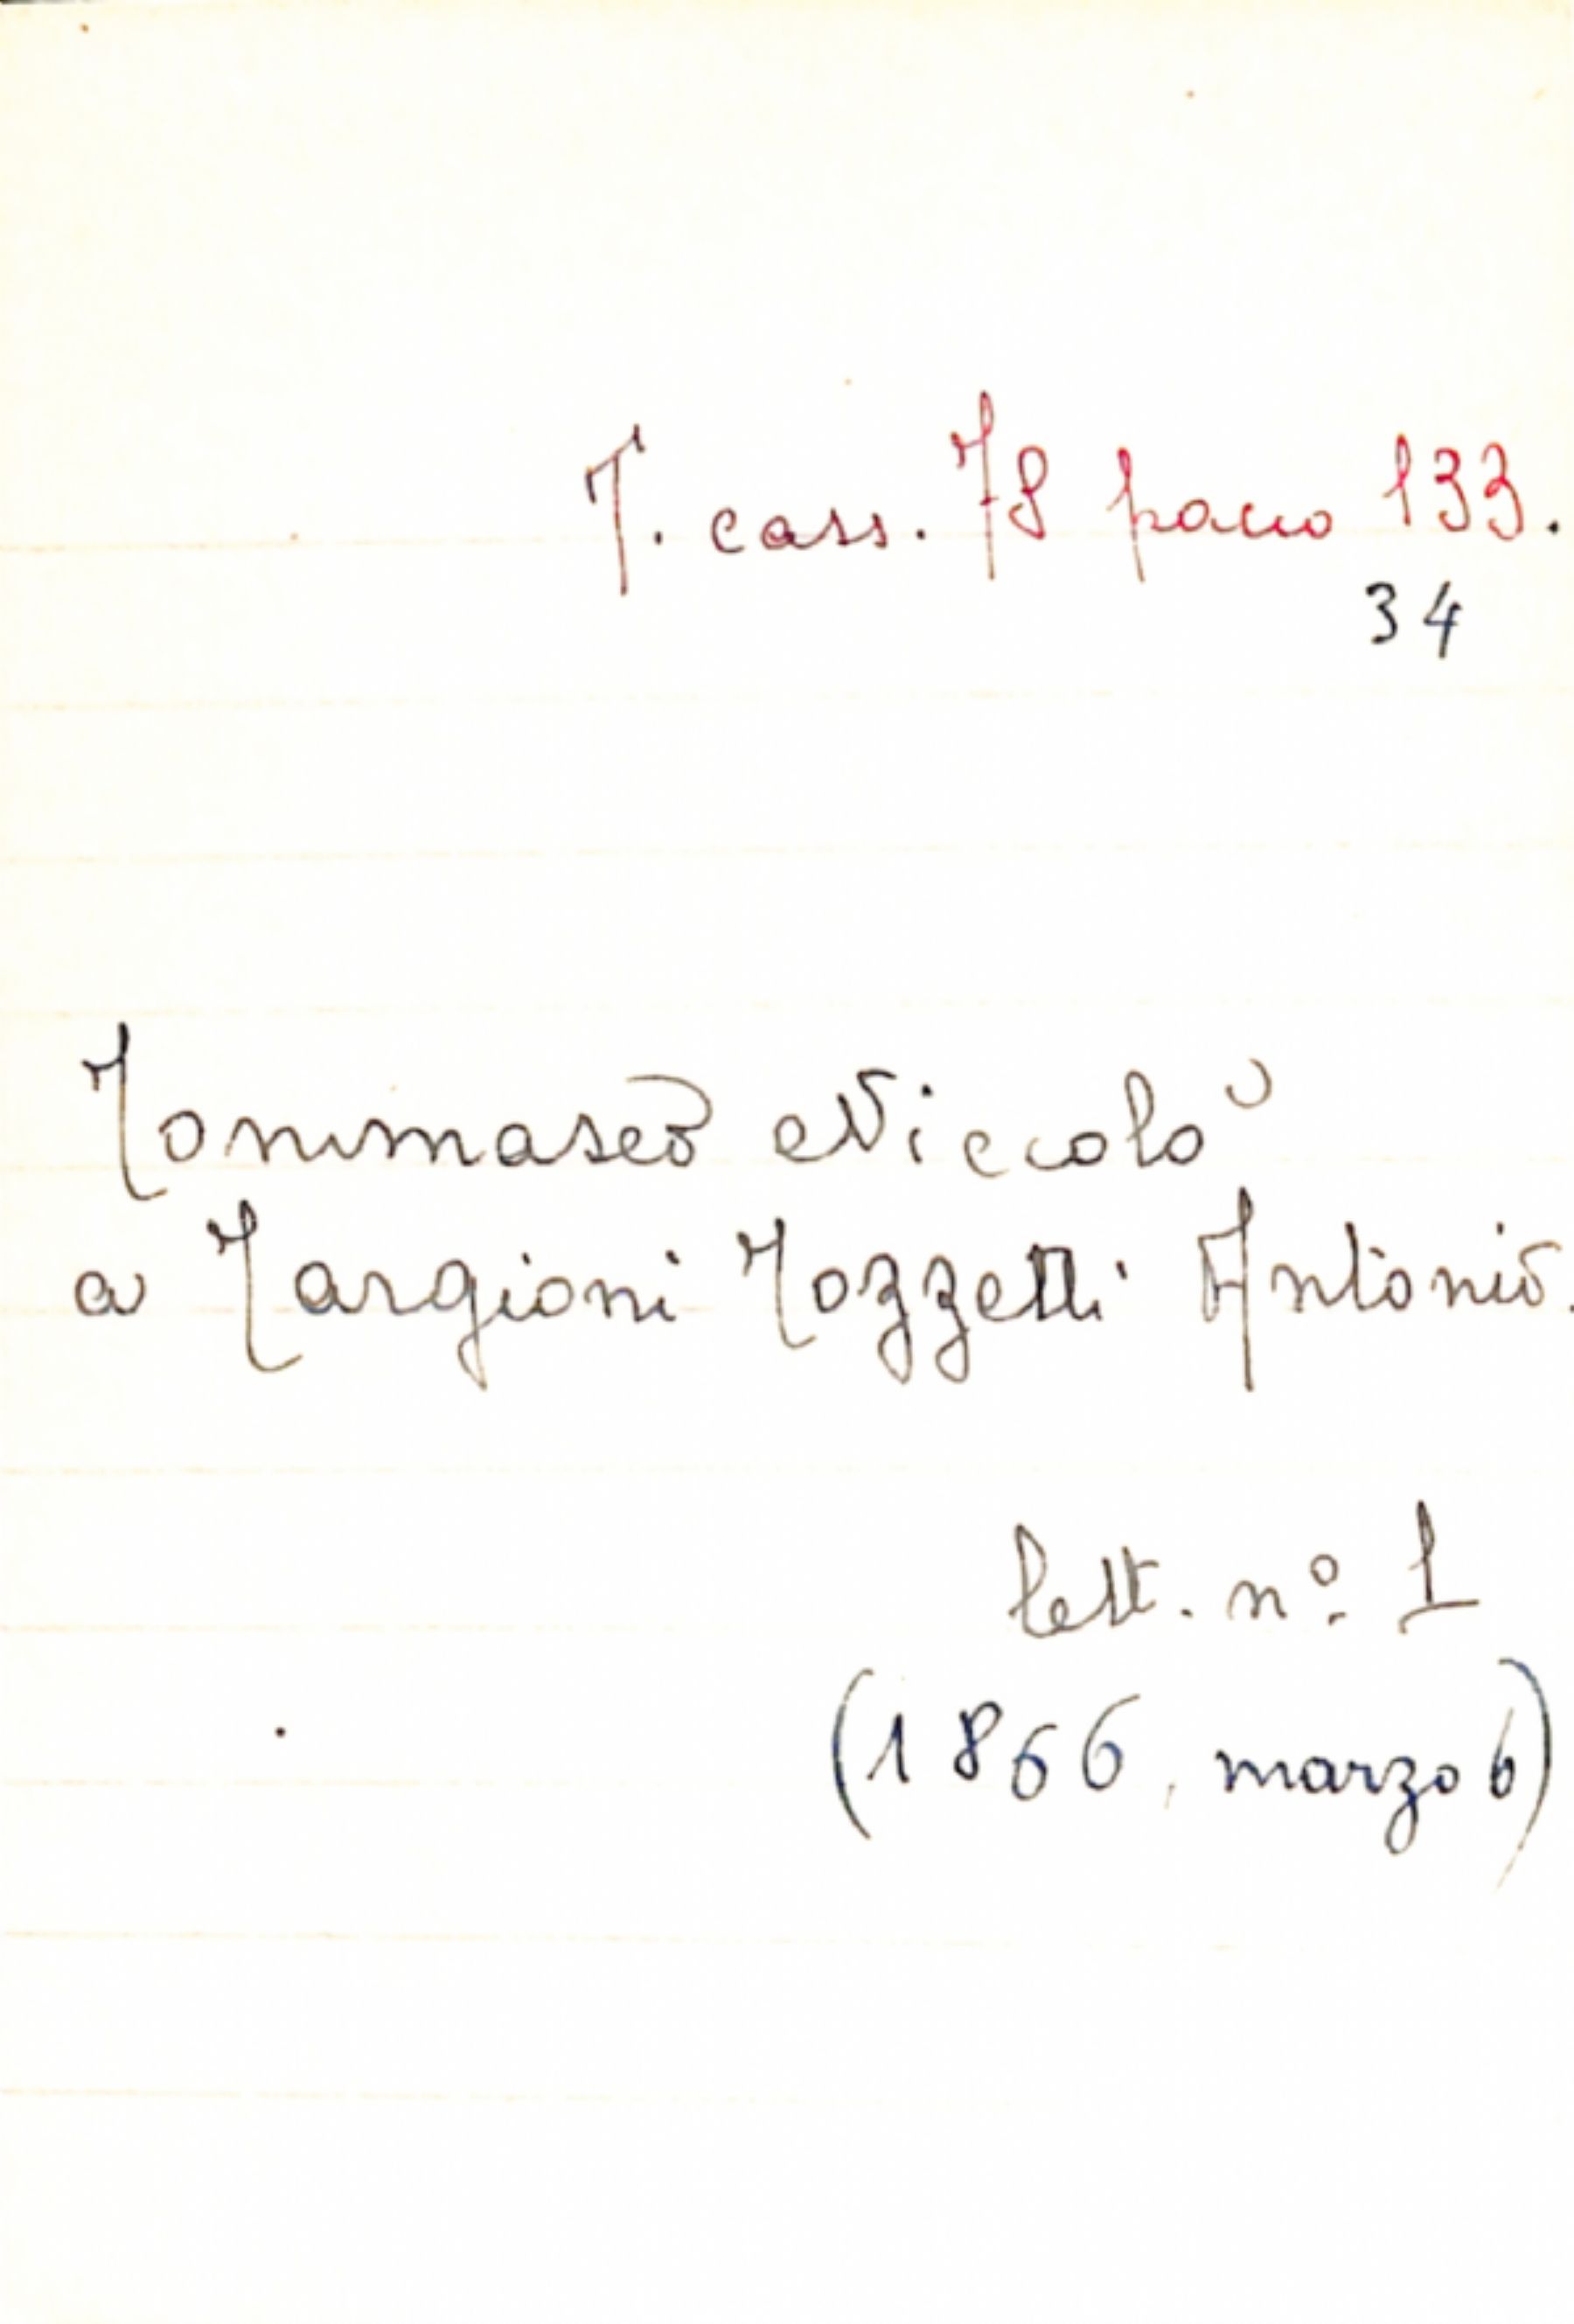 T. cass. 78 pacco 133.
34
Tommaseo Niccolò
a Targioni Tozzetti Antonio.
lett. nº 1
(1866, marzo 6)